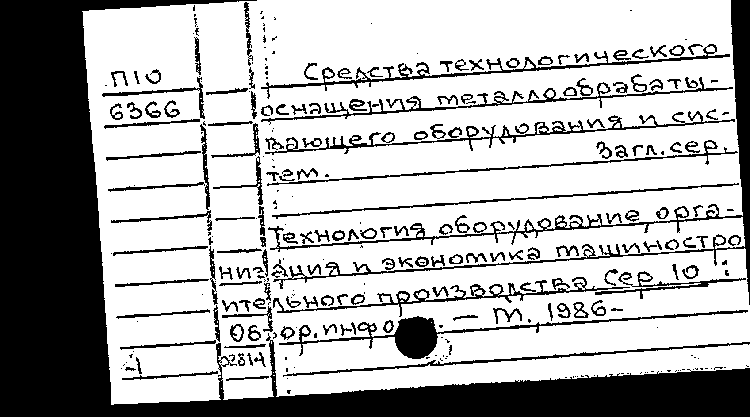 П10
6366
Средства технологического
оснащения металлообрабаты-
вающего оборудования и сис-
тем. Загл. сер.
Технология, оборудование, орга-
низация и экономика машиностро
ительного производства. Сер. 10 :
Обзор. информ. — М., 1986-